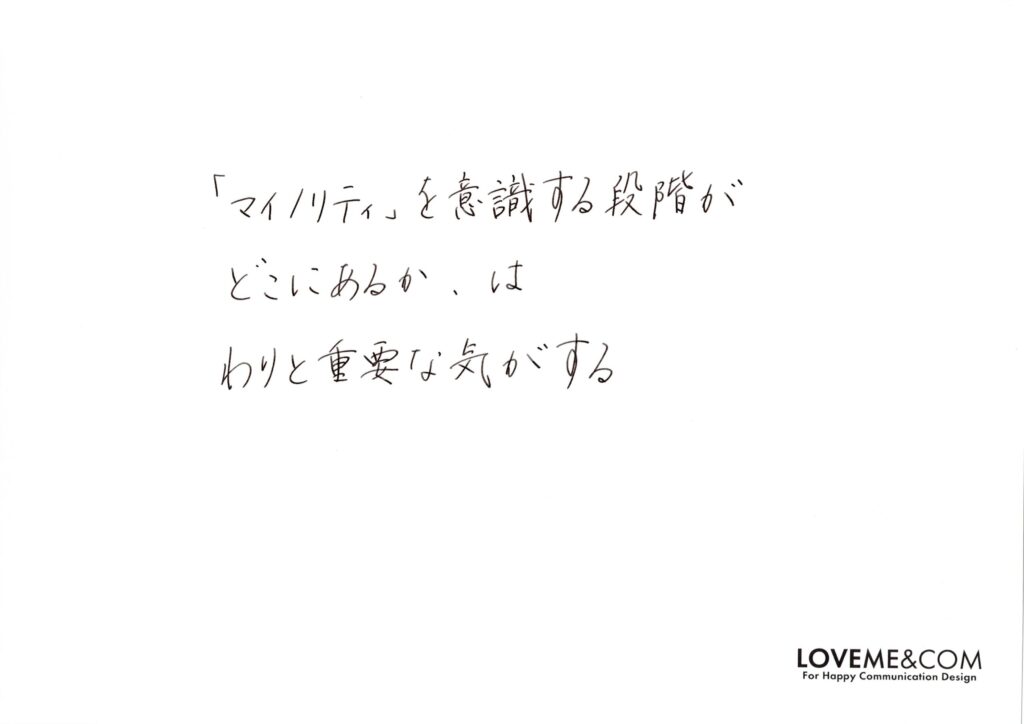 「マイノリティ」を意識する段階が
どこにあるか、は
わりと重要な気がする
LOVEME&COM
For Happy Communication Design